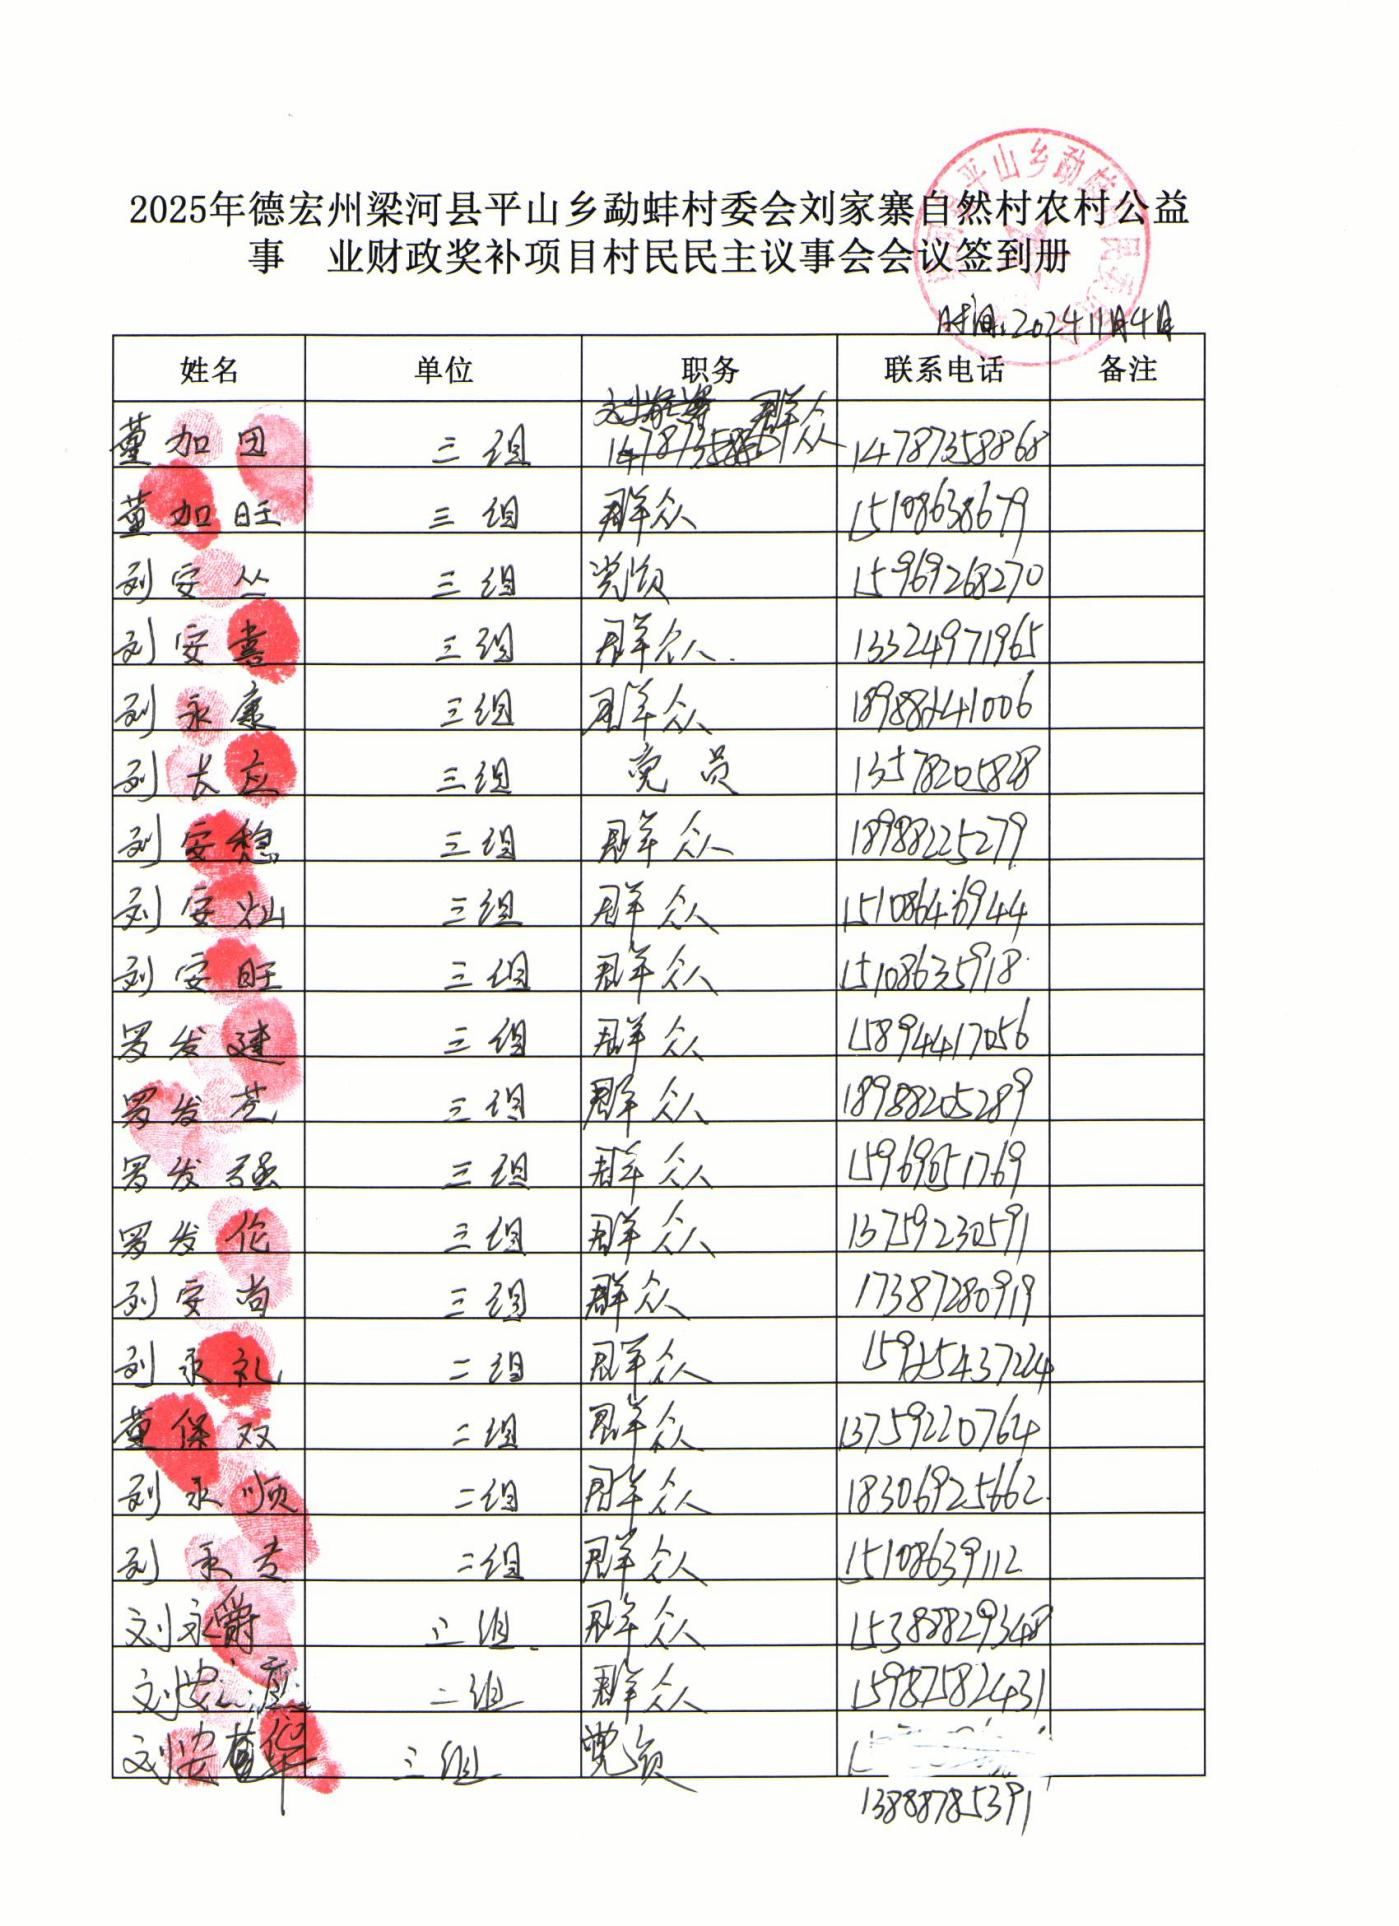 2025年德宏州梁河县平山乡勐蚌村委会刘家寨自然村农村公益
事 业财政奖补项目村民民主议事会会议签到册
时间:2024 11月4日
姓名 单位 职务 联系电话 备注
董加田 三组 群众 14787358868
董加旺 三组 群众 15108638679
刘安丛 三组 党员 15969268270
刘安喜 三组 群众. 13324971965
刘永康 三组 群众 18988241006
刘长应 三组 党员 13578205828
刘安稳 三组 群众 18988225279
刘安灿 三组 群众 15108646944
刘安旺 三组 群众 15108635918
罗发建 三组 群众 15894417056
罗发芝 三组 群众 18988205289
罗发强 三组 群众 15969051769
罗发伦 三组 群众 13759230591
刘安尚 三组 群众 17387280919
刘永礼 二组 群众 15925437224
董保双 二组 群众 13759220764
刘永顺 二组 群众 18306925662
刘永贵 二组 群众 15108639112
刘永爵 二组 群众 15388829348
刘安 二组 群众 15987582431
刘安华 三组 党员
13888785391